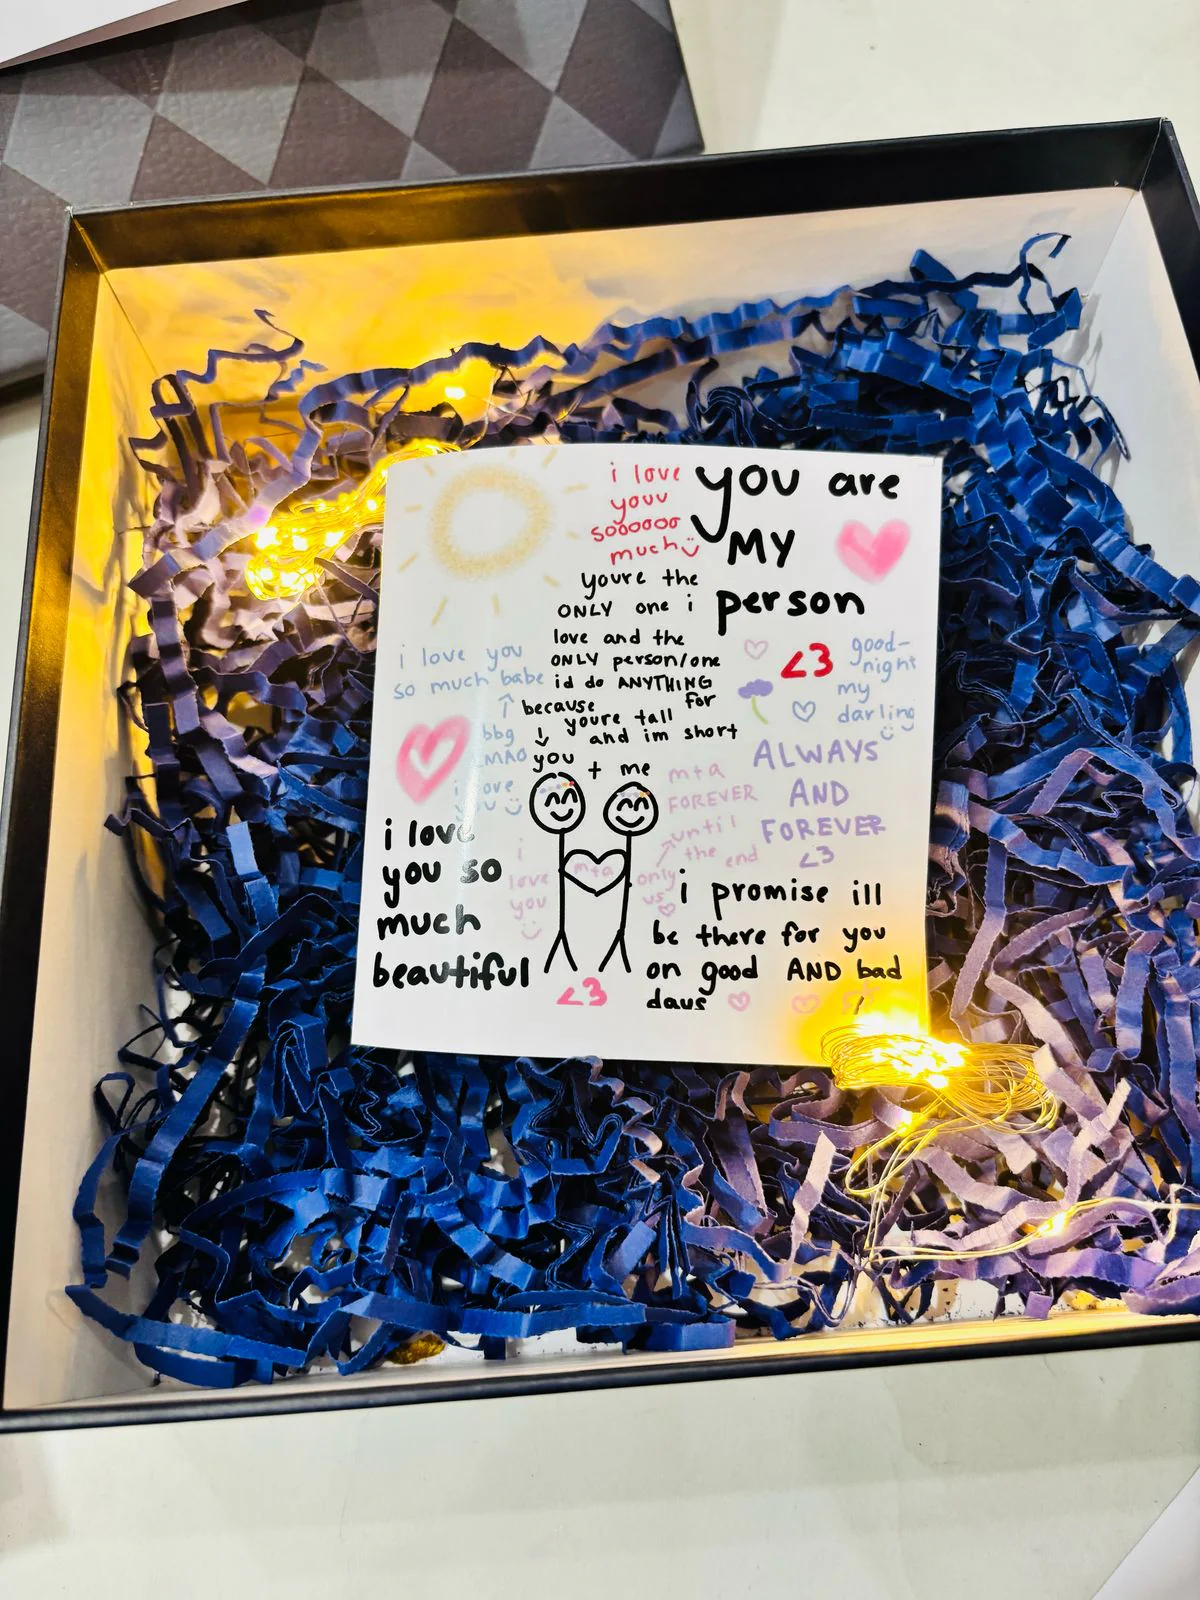 i love
youu
sooooo
much
you are
MY
person
youre the
ONLY one i
love and the
ONLY person/one
id do ANYTHING
for
because
youre tall
and im short
you + me
i love you
so much babe
bbg
LMAO
i love
you
i love
you so
much
beautiful
i
love
you
mta
<3
<3
good-
night
my
darling
ALWAYS
AND
FOREVER
<3
mta
FOREVER
until
the end
only
us
i promise ill
be there for you
on good AND bad
days